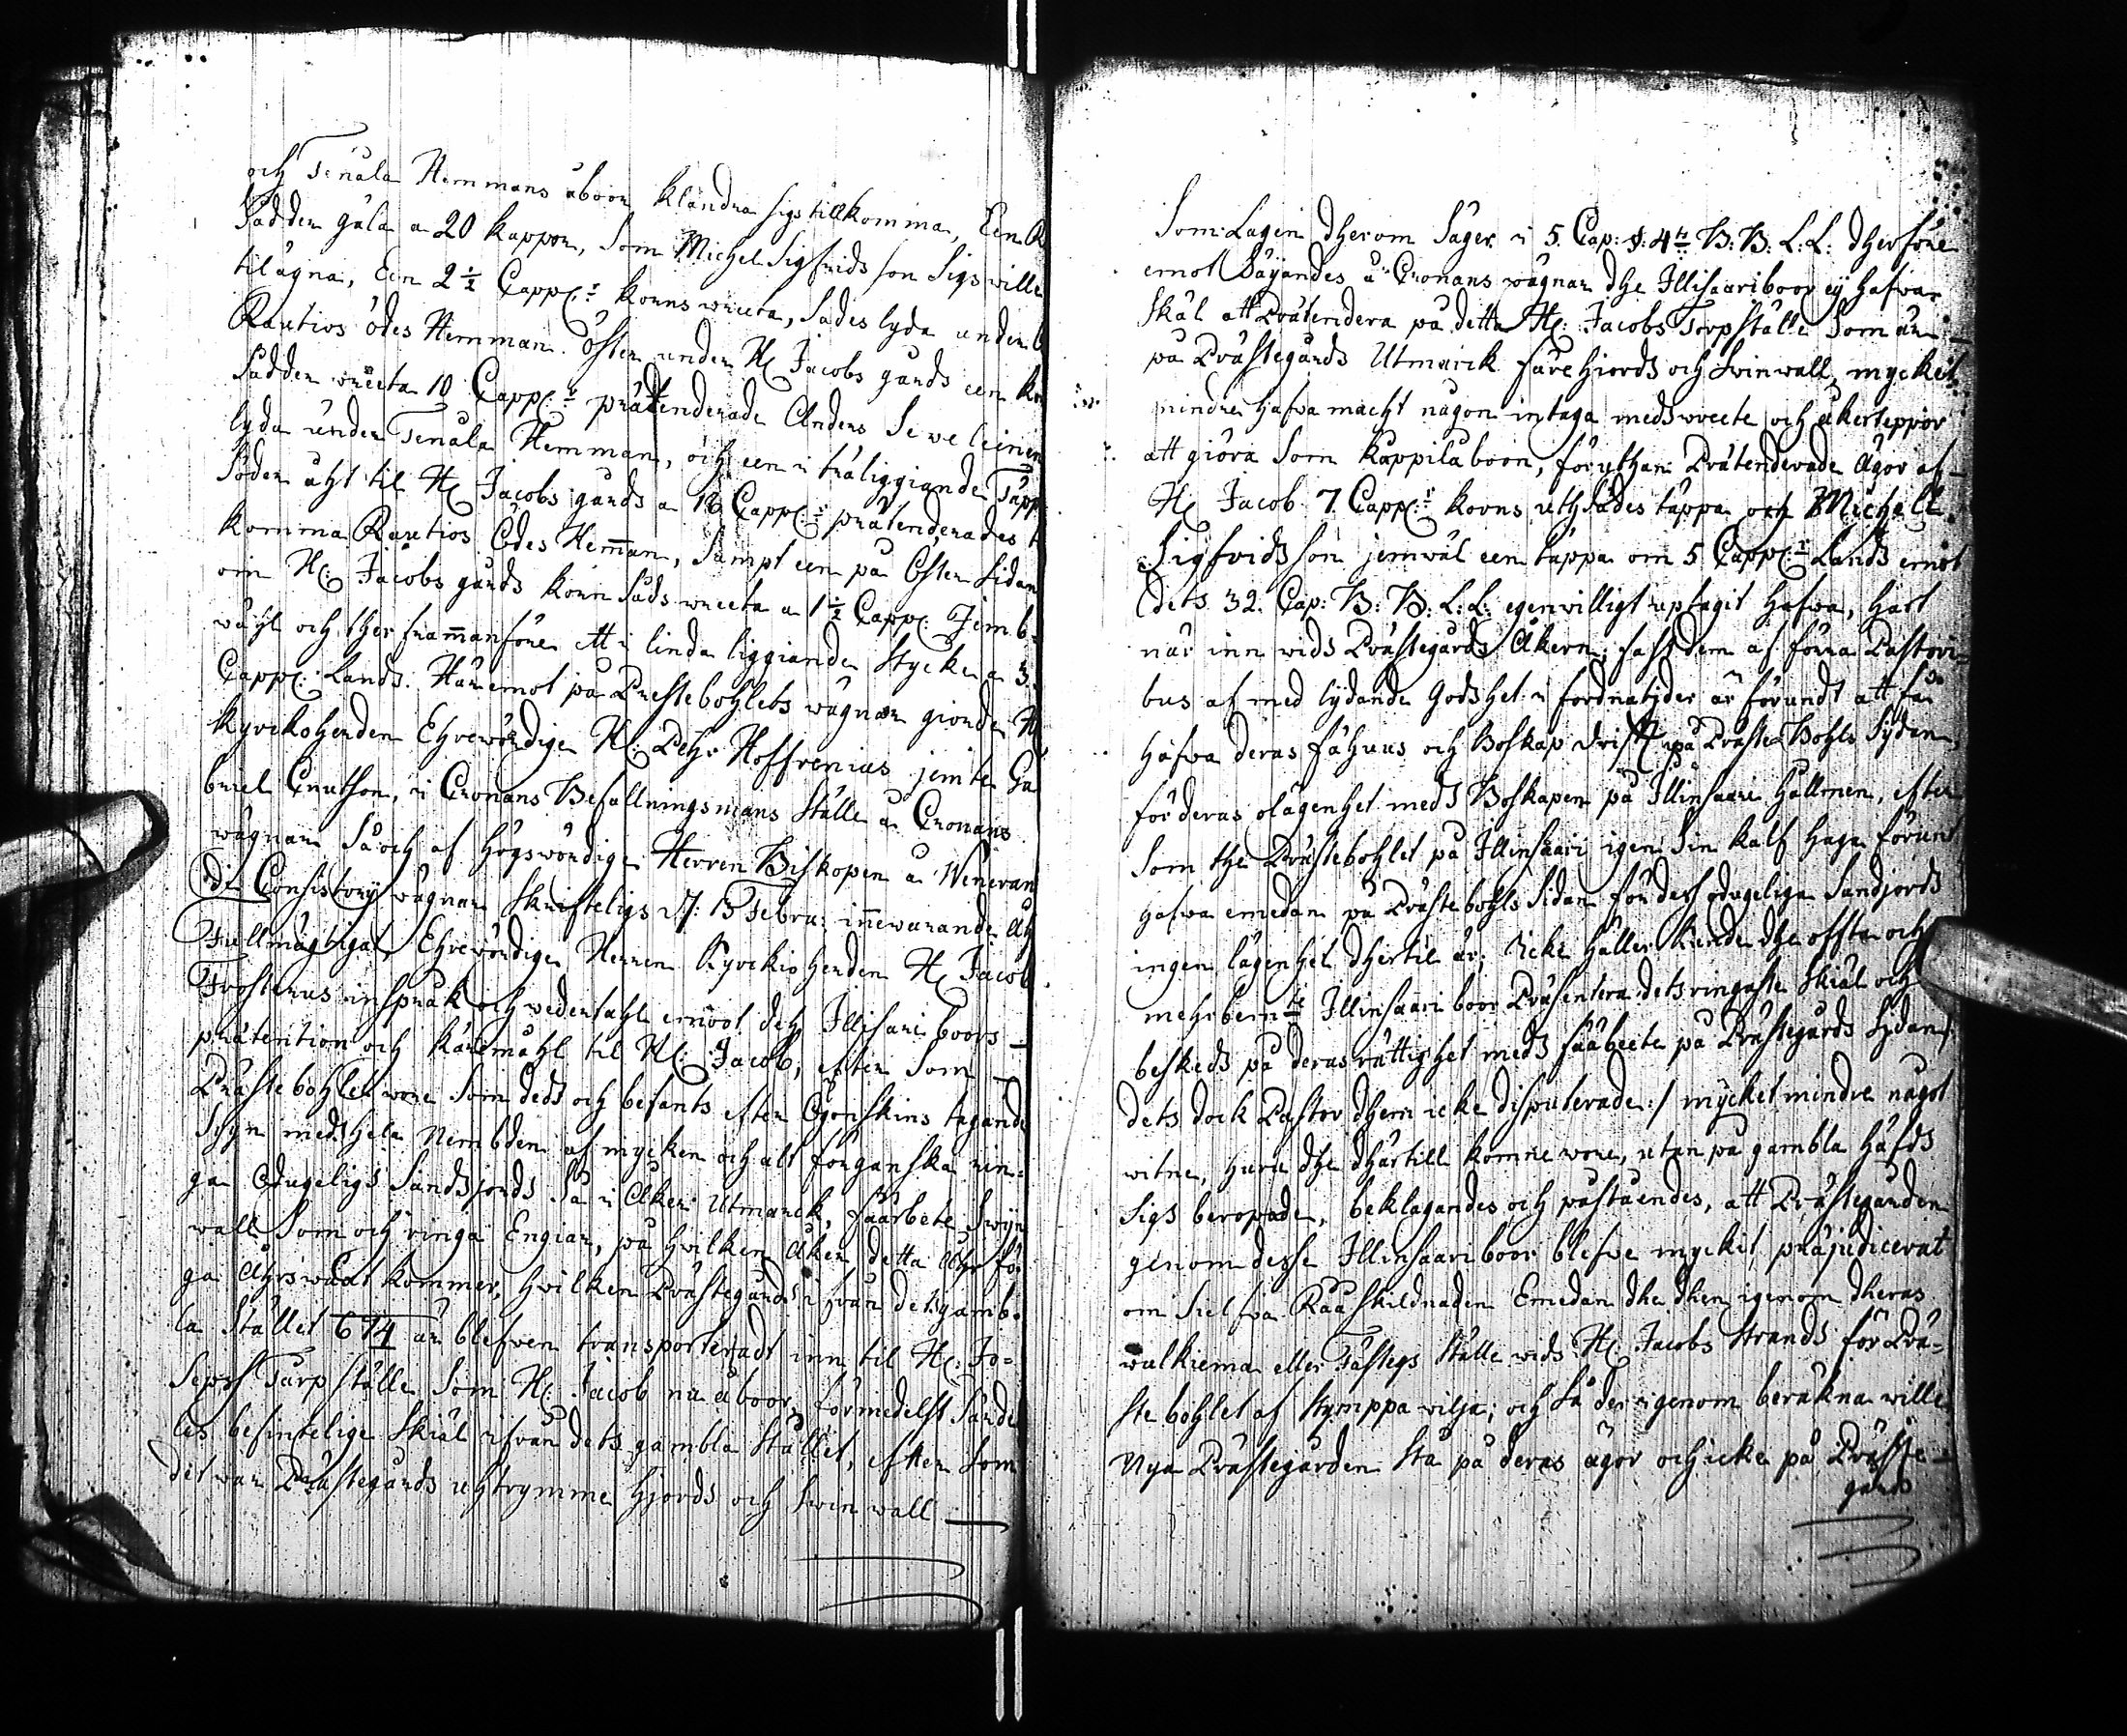 och Tenala Hemmans åboor klandra sigs tillkomma, Een
Sadder gala a 20 kappor, som Michel Sigfrids son Sigs wille
tilägna, Een 2½ Capp:r korns wreeta, Sades lyda under
Rautios ödes Hemman. Öster under H: Jacobs gårds een
Sadder wreeta 10 Capp:r prætenderade Anders Seweleinen
lyda under Tenala Hemman, och een i träliggiande Täpp
Söder åht til H: Jacobs gårds a 16 Capp:r prætenderades
komma Rautios Ödes Hem̄an, sampt een på Öster sidan
om H: Jacobs gårds korn Sads wreeta a 1½ Capp: Jemb-
wähl och ther fram̄anföre ett i linda liggiande stycke a 3.
Capp: Lands. Häremot på Prestebohlets wägnar giorde
kyrckoherden Ehrewördige H: Pehr Hoffrenius jemte Ga
briel Cnutson, i Cronans Befallningsmans ställe å Cronans
wägnar så och af högwördige Herren Biskopen å Veneran
di Consistorij wägnar skrifteligs d: 13 Febru: in̄ewarande åhr
Fullmägtigat Ehrewördige Herren Kyrckioherden H: Jacob
Frosterus inspråk och wedertahl emoot deß Illisari boors
prætention och käremåhl til H: Jacob, efter som
Prästebohlet wore som deds och befants efter Ögonskins tagande
Syn meds hela Nembden af mycken och alt för ganska rin-
ga Odugeligs Sandsjords så i Åker Utmarck, fåårbete Swijn
wall som och ringa Engiar, på hwilken åker detta åhr för
ga åhrswäxt kommer, hwilken Prästegårds ifrån dets gamb-
la stället 674 är blefwen transporteradt inn til H: Jo-
seps Torpställe som H: Jacob nu åboor, förmedelst särde
les befintelige skiäl ifrån dets gambla stället, efter som
det war Prästegårds uhtrymme hjords och swin wall
Som Lagen dherom säger i 5. Cap: §: 4:r B: B: L: L: dherföre
emot säyandes å Cronans wägnar dhe Illisaariboor ey hafwa
skäl att Prætendera på detta H: Jacobs Torpställe som är
på Prästegårds Utmarck färe hiords och Swinwall, mycket
mindre hafwa macht någon intaga medswreete och åkerteppor
att giöra som Kappilaboon, föruthan Prætenderade Ägor af
H: Jacob 7 Capp:r korns uthsädes täppa och Michell
Sigfridsson jemwäl een täppa om 5 Capp:r Lands emot
dets 32. Cap: B: B: L: L: egenwilligt uptagit hafwa, hart
när inn wids Prästegårds Åkern, fast dem af förra Pastori-
bus af med lydande Godshet i fordnatijder är förundt att få
hafwa deras fähuus och Boskap drift på Präste Bohls Sydan,
för deras olägenhet meds Boskapen på Illinsaari Hållmen, efter
som the Prästebohlet på Illinsaari igen sin kalf haga förunt
hafwa emedan på Prästebohls sidan för dess odugeliga sandjords
ingen lägenhet dhertil är; Icke häller kunde dhe offta och
mehrbem:te Illinsaari boor Præsentera dets ringaste skiäl och
beskeds på deras rättighet meds fääbeete på Prästegårds Sydan,
dets dock Pastor dhem icke disputerade :/ mycket mindre något
witne, huru dhe dhärtill komne wore, utan på gambla häfds
sigs beropade, beklagandes och påståendes, att Prästegården
genom desse Illinsaari boor blefwe myckit præjudicerat
om sielfwa Rååskildnaden Emedan dhe dhen igenom dheras
walkiema eller Fästegs ställe wids H: Jacobs Strands för Prä-
ste bohlet af stymppa wilja; och så der igenom beräkna wille
Nya Prästegården stå på deras ägor och icke på Präste-
gårds